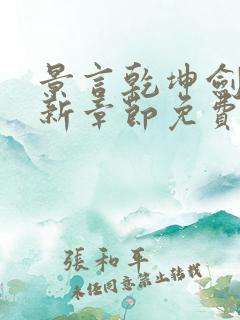 景言乾坤劍
新章節免費
張和平
未经同意禁止转载